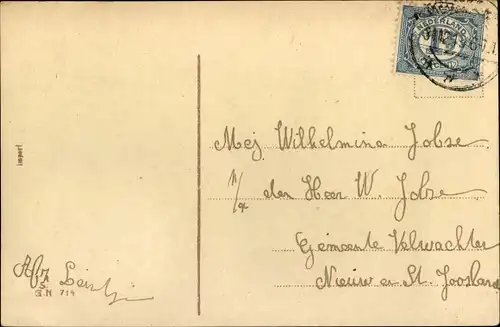 NEDERLAND
Mej Wilhelmina Jobse
p/a den Heer W. Jobse
Gemeente Velwachter
Nieuw en St. Joosland
import
Afz
A
S
G.N 714